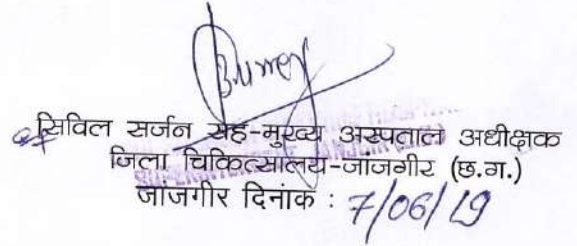 सिविल सर्जन सह-मुख्य अस्पताल अधीक्षक
जिला चिकित्सालय-जांजगीर (छ.ग.)
जांजगीर दिनांक : 7/06/19